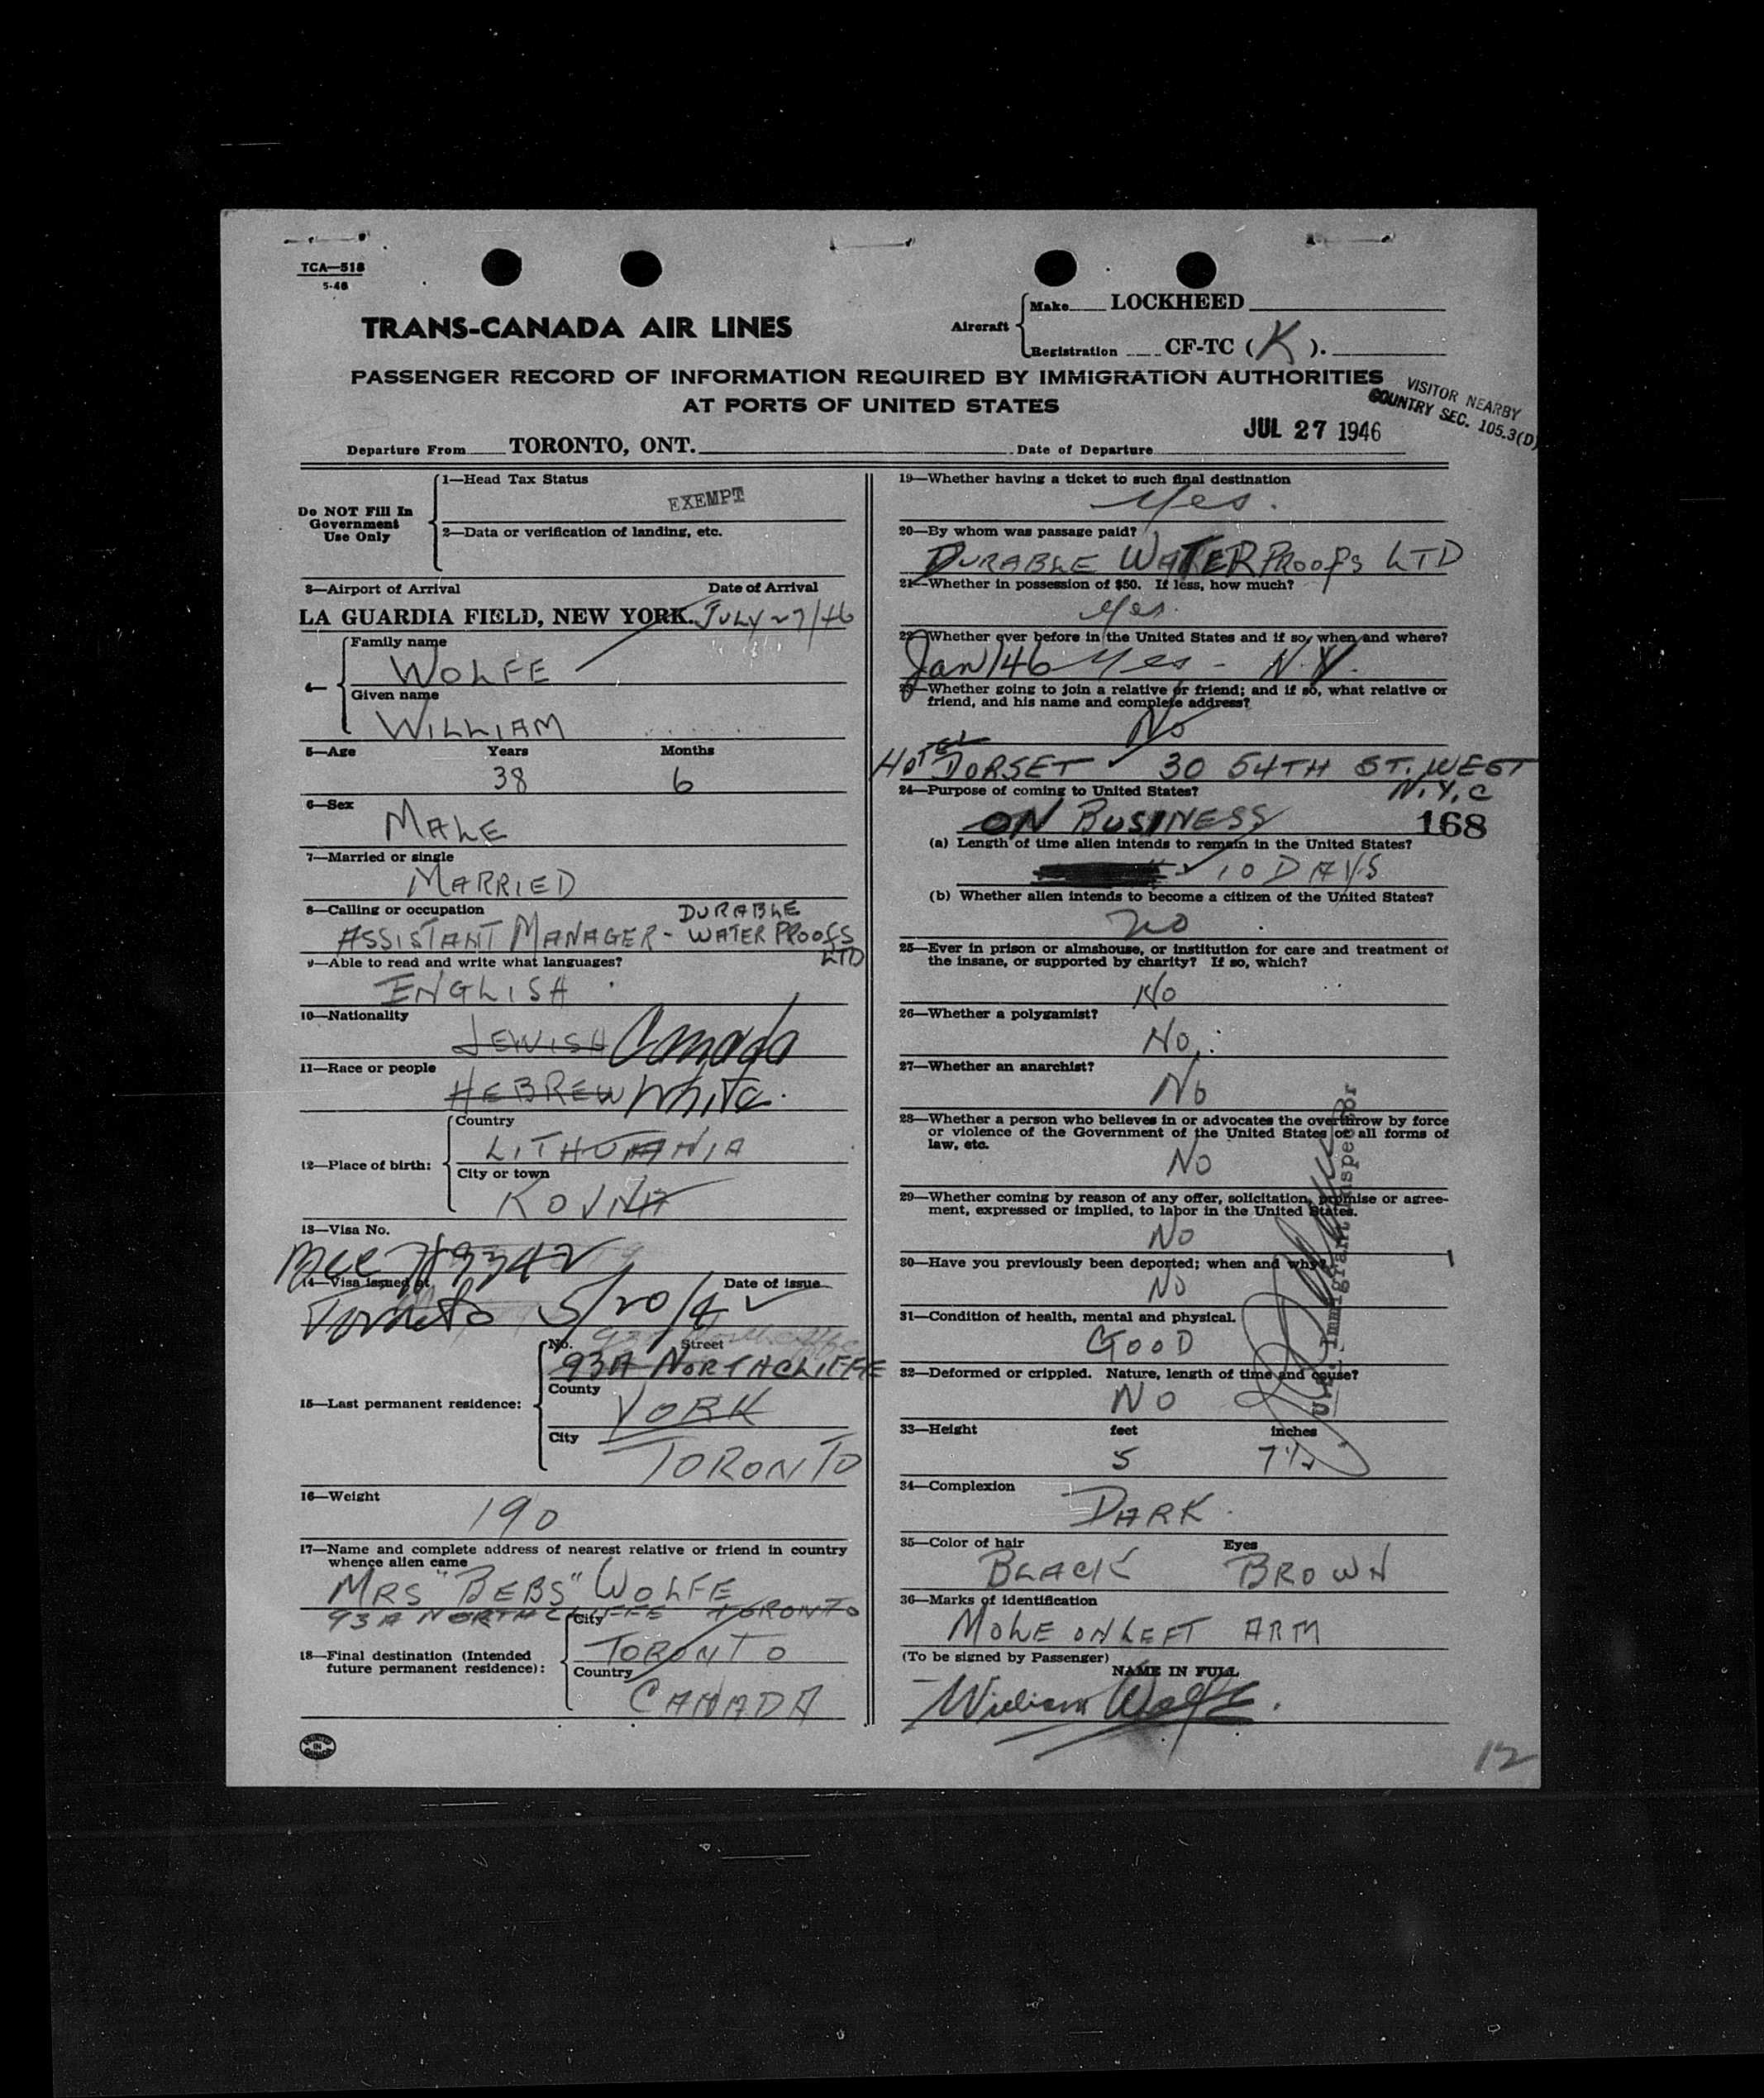 TCA—518
5-46
TRANS-CANADA AIR LINES
Aircraft
Make LOCKHEED
Registration CF-TC (K).
PASSENGER RECORD OF INFORMATION REQUIRED BY IMMIGRATION AUTHORITIES
AT PORTS OF UNITED STATES
VISITOR NEARBY
COUNTRY SEC. 105.3(D)
Departure From TORONTO, ONT. Date of Departure JUL 27 1946
Do NOT Fill In
Government
Use Only
1—Head Tax Status
EXEMPT
2—Data or verification of landing, etc.
3—Airport of Arrival Date of Arrival
LA GUARDIA FIELD, NEW YORK. JULY 27/46
4—
Family name
WOLFE
Given name
WILLIAM
5—Age Years Months
38 6
6—Sex
MALE
7—Married or single
MARRIED
8—Calling or occupation
ASSISTANT MANAGER - DURABLE
WATER PROOFS
LTD
9—Able to read and write what languages?
ENGLISH
10—Nationality
JEWISH Canada
11—Race or people
HEBREW White
12—Place of birth:
Country
LITHUANIA
City or town
KOVNA
13—Visa No.
14—Visa issued at Date of issue
Toronto 5/20/42
15—Last permanent residence:
No. Street
93A NORTHCLIFFE
County
YORK
City
TORONTO
16—Weight
190
17—Name and complete address of nearest relative or friend in country
whence alien came
MRS "BEBS" WOLFE
93A NORTHCLIFFE TORONTO
18—Final destination (Intended
future permanent residence):
City
TORONTO
Country
CANADA
PRINTED
IN
CANADA
19—Whether having a ticket to such final destination
Yes.
20—By whom was passage paid?
DURABLE WATERPROOFS LTD
21—Whether in possession of $50. If less, how much?
Yes.
22—Whether ever before in the United States and if so, when and where?
Jan/46 Yes - N.Y.
23—Whether going to join a relative or friend; and if so, what relative or
friend, and his name and complete address?
No
HOTEL DORSET 30 54TH ST. WEST
N.Y.C
24—Purpose of coming to United States?
ON BUSINESS
168
(a) Length of time alien intends to remain in the United States?
10 DAYS
(b) Whether alien intends to become a citizen of the United States?
no
25—Ever in prison or almshouse, or institution for care and treatment of
the insane, or supported by charity? If so, which?
No
26—Whether a polygamist?
No
27—Whether an anarchist?
No
28—Whether a person who believes in or advocates the overthrow by force
or violence of the Government of the United States or all forms of
law, etc.
No
29—Whether coming by reason of any offer, solicitation, promise or agree-
ment, expressed or implied, to labor in the United States.
No
30—Have you previously been deported; when and why?
No
31—Condition of health, mental and physical.
GOOD
32—Deformed or crippled. Nature, length of time and cause?
NO
U.S. Immigrant Inspector
33—Height feet inches
5 7½
34—Complexion
DARK
35—Color of hair Eyes
BLACK BROWN
36—Marks of identification
MOLE ON LEFT ARM
(To be signed by Passenger)
NAME IN FULL
William Wolfe.
12